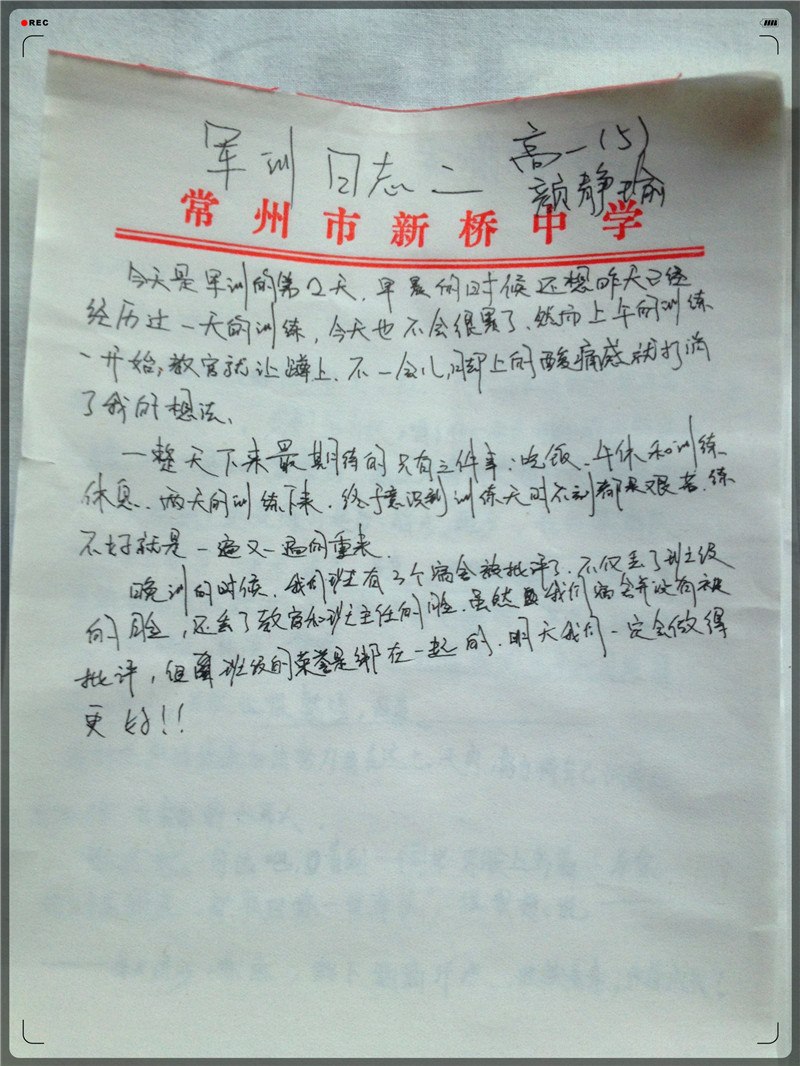 REC
军训日志二 高一(5)
颜静瑜
常州市新桥中学
今天是军训的第2天,早晨的时候还想昨天已经
经历过一天的训练,今天也不会很累了,然而上午的训练
一开始,教官就让蹲上,不一会儿脚上的酸痛感就打消
了我的想法、
一整天下来最期待的只有三件事:吃饭、午休和训练
休息、两天的训练下来,终于意识到训练无时不刻都是艰苦,练
不好就是一遍又一遍的重来、
晚训的时候,我们班有3个宿舍被批评了、不仅丢了班级
的脸,还丢了教官和班主任的脸、虽然我们宿舍并没有被
批评,但班级的荣誉是绑在一起的、明天我们一定会做得
更好!!